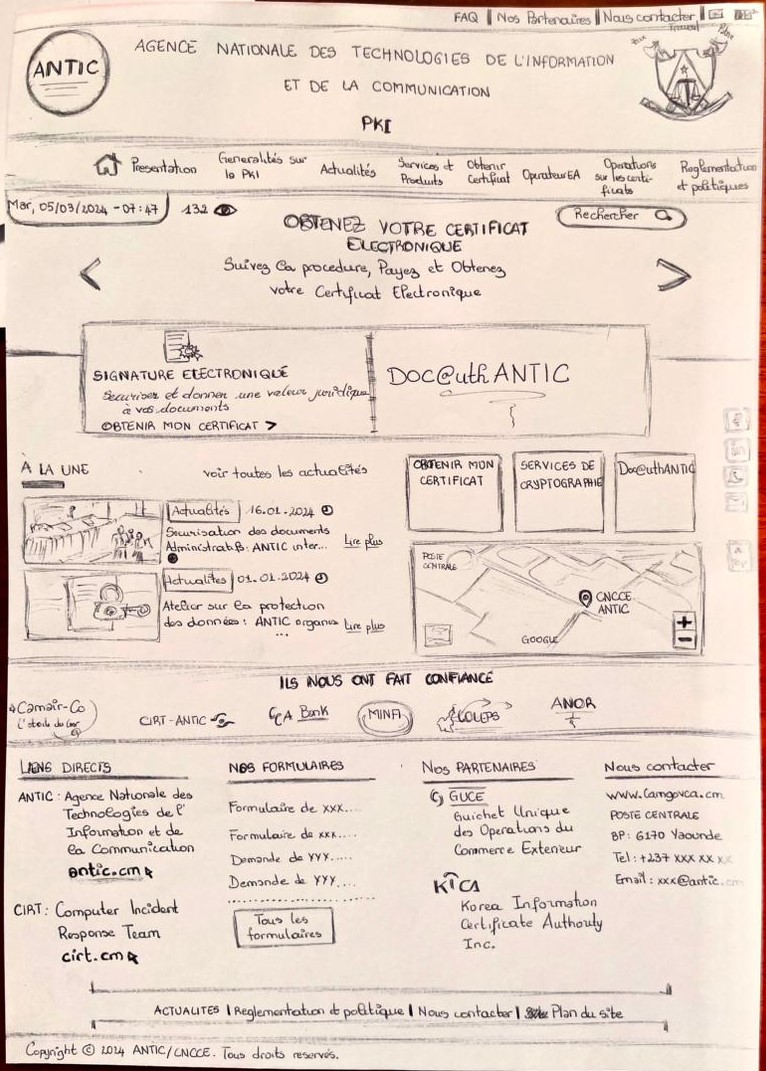 FAQ | Nos Partenaires | Nous contacter
ANTIC
AGENCE NATIONALE DES TECHNOLOGIES DE L'INFORMATION
ET DE LA COMMUNICATION
PKI
Travail
Presentation
Generalités sur
la PKI
Actualités
Services et
Produits
Obtenir
Certificat
OperateurEA
Operations
sur les certi-
ficats
Reglementation
et politiques
Mar, 05/03/2024 - 07:47
132
Rechercher
OBTENEZ VOTRE CERTIFICAT
ELECTRONIQUE
Suivez la procedure, Payez et Obtenez
votre Certificat Electronique
< >
SIGNATURE ELECTRONIQUE
Securisez et donner une valeur juridique
à vos documents
OBTENIR MON CERTIFICAT >
DOC@uthANTIC
À LA UNE
voir toutes les actualités
Actualités 16.01.2024
Securisation des documents
Administratifs: ANTIC inter... Lire plus
Actualites 01.01.2024
Atelier sur la protection
des données: ANTIC organise Lire plus
...
OBTENIR MON
CERTIFICAT
SERVICES DE
CRYPTOGRAPHIE
Doc@uthANTIC
POSTE
CENTRALE
CNCCE
ANTIC
GOOGLE
+
-
ILS NOUS ONT FAIT CONFIANCE
Camair-Co
CIRT-ANTIC
CCA Bank
MINFI
COLEPS
ANOR
LIENS DIRECTS
ANTIC : Agence Nationale des
Technologies de l'
Information et de
la Communication
antic.cm
CIRT : Computer Incident
Response Team
cirt.cm
NOS FORMULAIRES
Formulaire de xxx....
Formulaire de xxx....
Demande de YYY.....
Demande de YYY.....
Tous les
formulaires
NOS PARTENAIRES
GUCE
Guichet Unique
des Operations du
Commerce Exterieur
KICA
Korea Information
Certificate Authouty
Inc.
Nous contacter
www.Camgovca.cm
POSTE CENTRALE
BP : 6170 Yaounde
Tel : +237 xxx xx xx
Email : xxx@antic.cm
ACTUALITES | Reglementation et politique | Nous contacter | Plan du site
Copyright © 2024 ANTIC/CNCCE. Tous droits reservés.